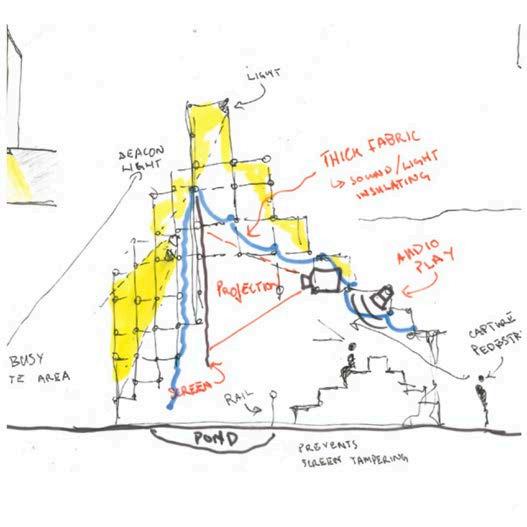 LIGHT
BEACON
LIGHT
THICK FABRIC
↳ SOUND/LIGHT
INSULATING
AUDIO
PLAY
PROJECTION
CAPTURE
PEDESTR
BUSY
TE AREA
SCREEN
RAIL
POND
PREVENTS
SCREEN TAMPERING